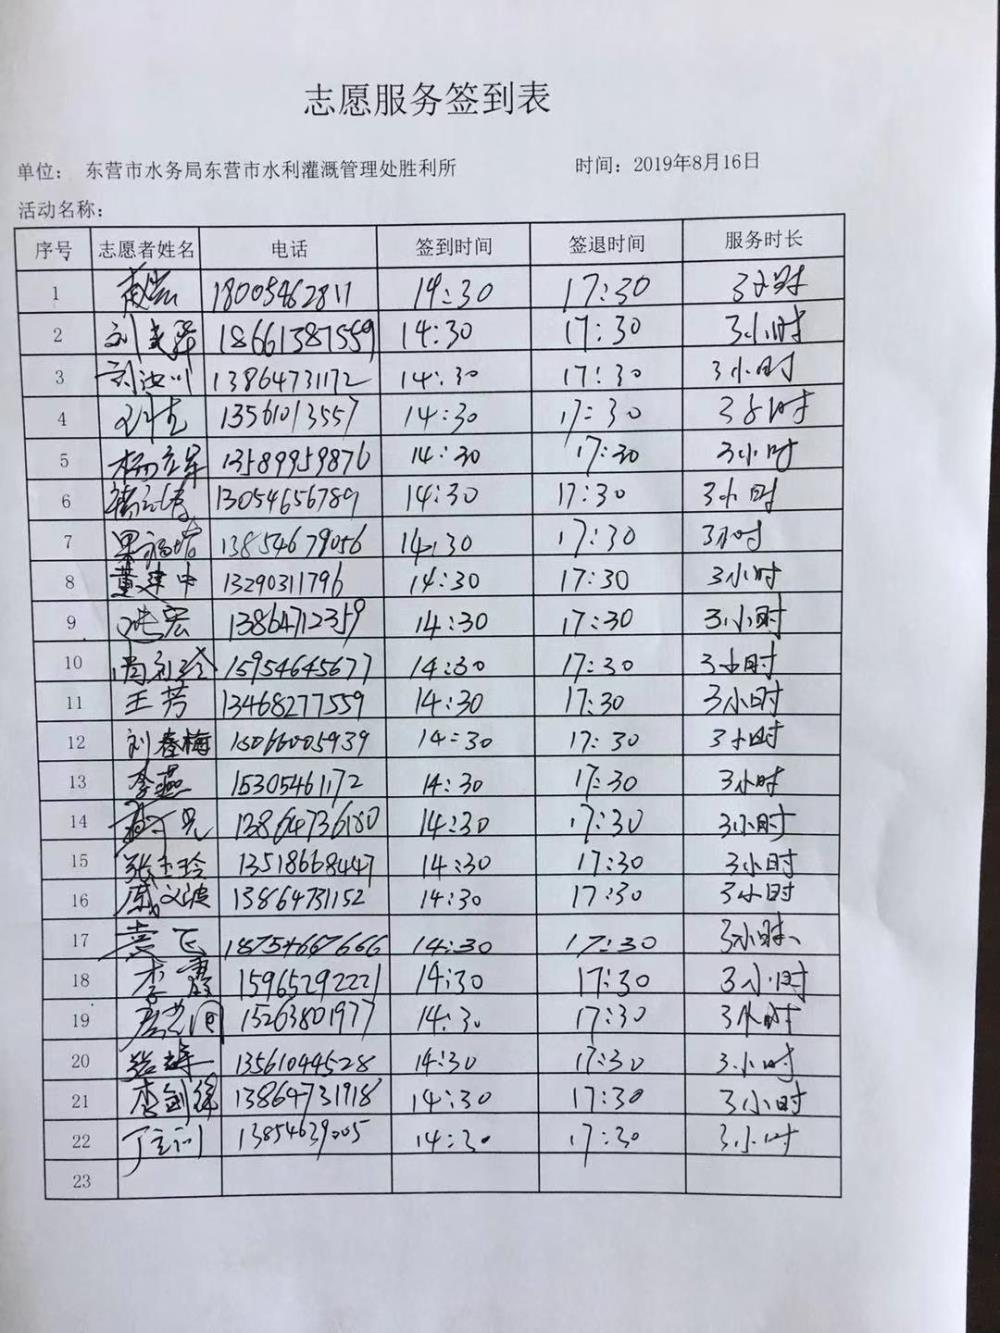 志愿服务签到表
单位： 东营市水务局东营市水利灌溉管理处胜利所 时间：2019年8月16日
活动名称：
序号 志愿者姓名 电话 签到时间 签退时间 服务时长
1 18005462811 14:30 17:30 3小时
2 18661387559 14:30 17:30 3小时
3 刘汝川 13864731172 14:30 17:30 3小时
4 13561013557 14:30 17:30 3小时
5 杨立军 13589959876 14:30 17:30 3小时
6 13054656789 14:30 17:30 3小时
7 13854679056 14:30 17:30 3小时
8 董建中 13290311796 14:30 17:30 3小时
9 13864712359 14:30 17:30 3小时
10 15954645677 14:30 17:30 3小时
11 王芳 13468277559 14:30 17:30 3小时
12 刘春梅 14:30 17:30 3小时
13 李燕 15305461172 14:30 17:30 3小时
14 13864736180 14:30 17:30 3小时
15 张玉玲 13518668447 14:30 17:30 3小时
16 13864731152 14:30 17:30 3小时
17 袁飞 18754667666 14:30 17:30 3小时
18 李霞 15965292221 14:30 17:30 3小时
19 15263801977 14:30 17:30 3小时
20 13561044528 14:30 17:30 3小时
21 李剑锋 13864731918 14:30 17:30 3小时
22 13854639005 14:30 17:30 3小时
23